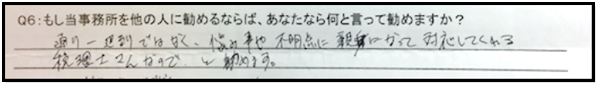 Q6:もし当事務所を他の人に勧めるならば、あなたなら何と言って勧めますか?
通り一遍到ではなく、悩み事や不明点に親身になって対応してくれる
税理士さんなので、と勧めます。